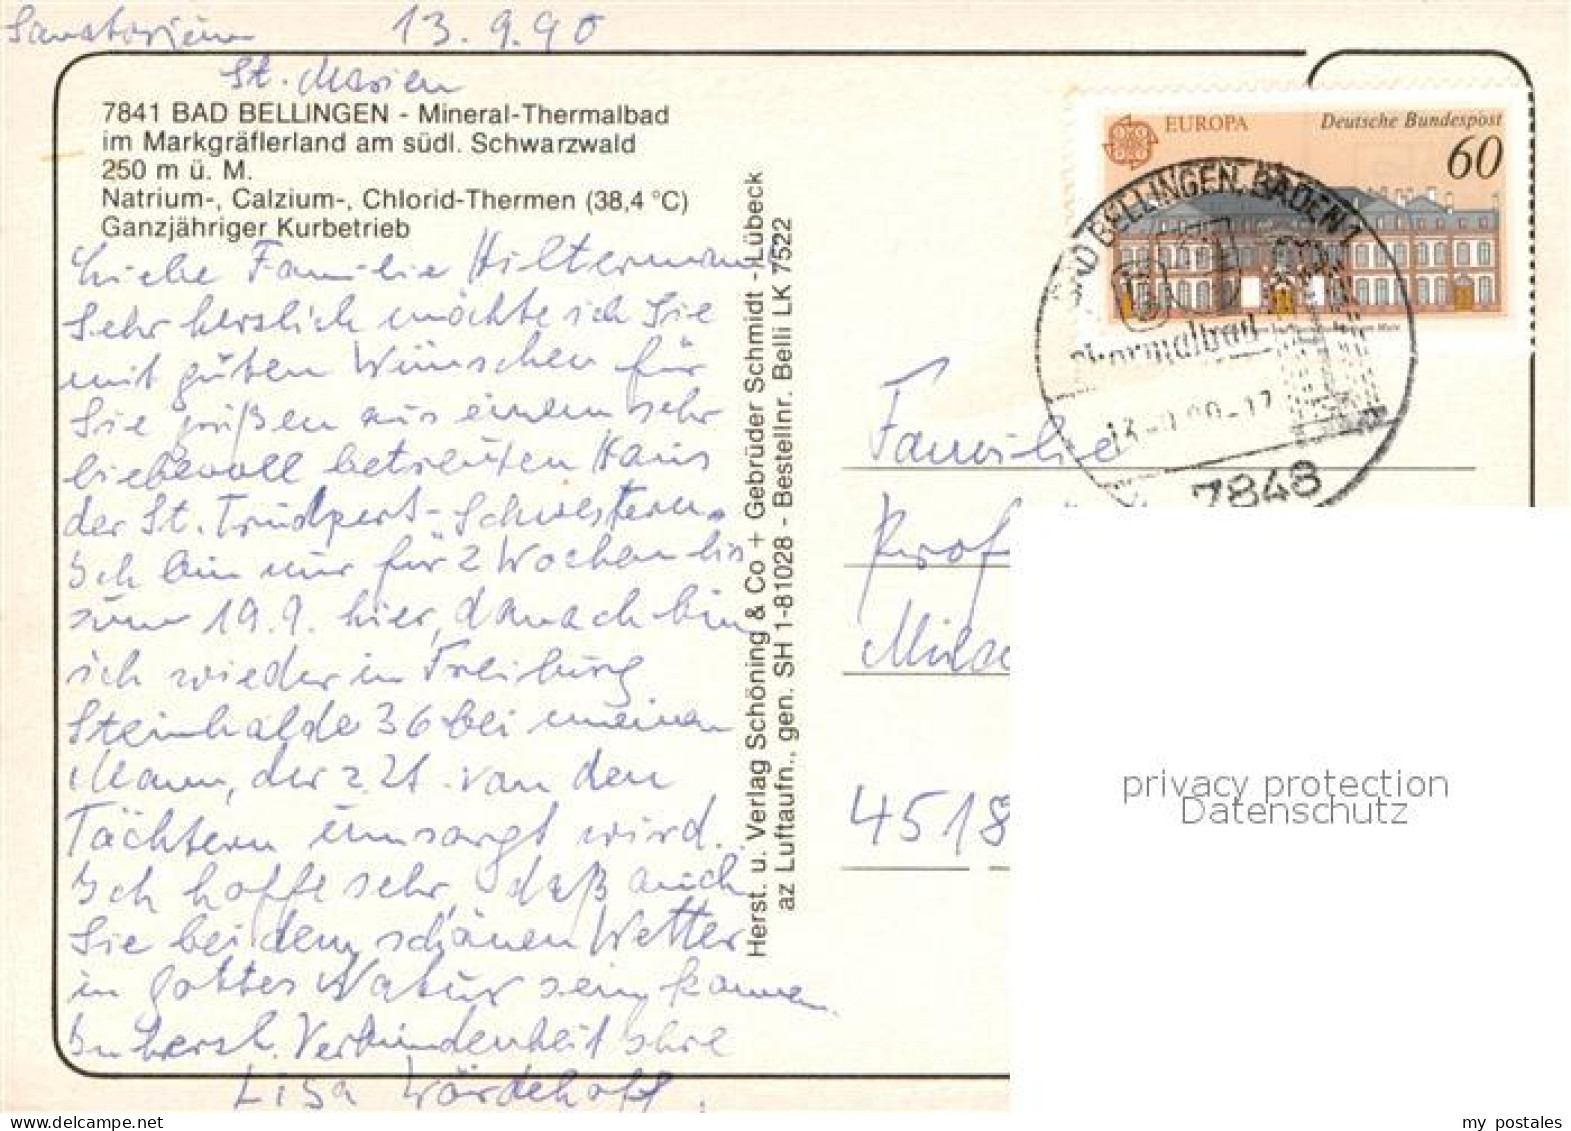 Sanatorium 13.9.90
St. Marien
7841 BAD BELLINGEN - Mineral-Thermalbad
im Markgräflerland am südl. Schwarzwald
250 m ü. M.
Natrium-, Calzium-, Chlorid-Thermen (38,4 °C)
Ganzjähriger Kurbetrieb
Liebe Familie Hiltermann
Sehr herzlich möchte ich Sie
mit guten Wünschen für
Sie grüßen aus einem sehr
liebevoll betreuten Haus
der St. Trudpert-Schwestern.
Ich bin nur für 2 Wochen bis
zum 19.9. hier, danach bin
ich wieder in Freiburg
Steinhalde 36 bei meinem
Mann, der z. Zt. von den
Töchtern umsorgt wird.
Ich hoffe sehr, daß auch
Sie bei dem schönen Wetter
in Gottes Natur sein können
In herzl. Verbundenheit Ihre
Lisa Wördehoff.
Herst. u. Verlag Schöning & Co + Gebrüder Schmidt - Lübeck
az Luftaufn., gen. SH 1-81028 - Bestellnr. Belli LK 7522
EUROPA Deutsche Bundespost
60
BAD BELLINGEN, BADEN 1
Thermalbad
7848
Familie
Prof
4518
privacy protection
Datenschutz
my postales